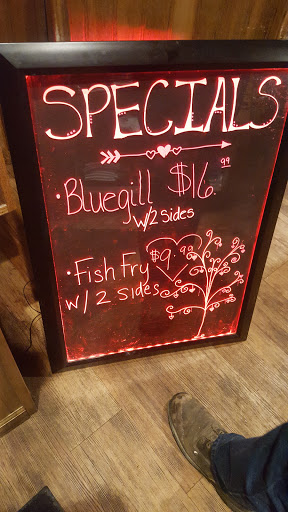 SPECIALS
• Bluegill $16.99
w/2 sides
• Fish Fry $9.99
w/ 2 sides